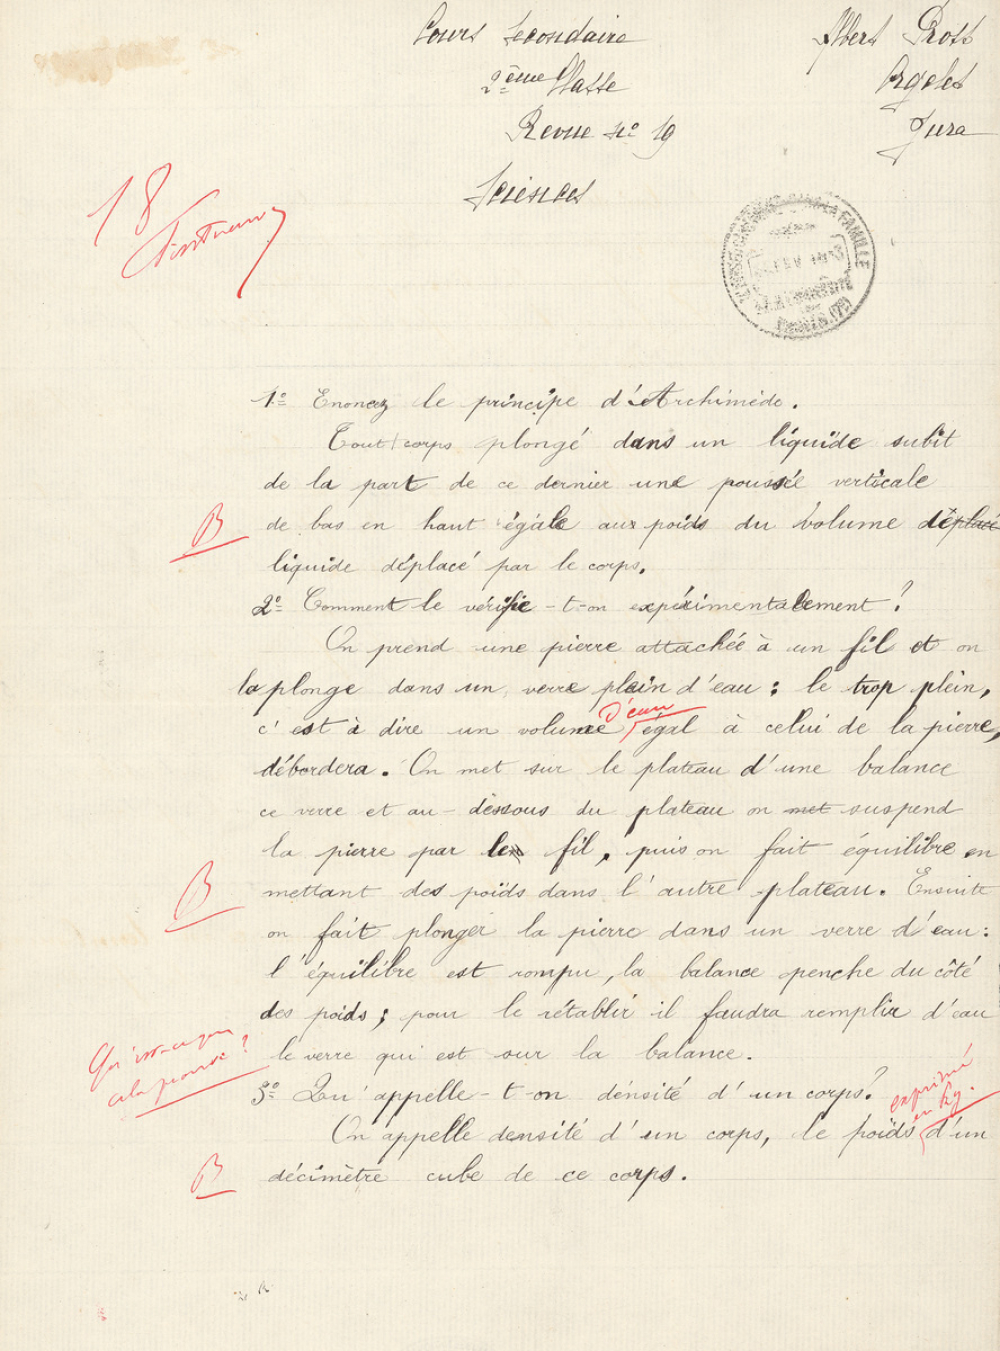 Cours Secondaire
Albert Prost
2ème Classe
Argelet
Revue no 19
Jura
Sciences
18
LA FAMILLE
PARIS
1º Enoncez le principe d'Archimède.
Tout corps plongé dans un liquide subit
de la part de ce dernier une poussée verticale
B
de bas en haut égale aux poids du volume déplacé
liquide déplacé par le corps.
2º Comment le vérifie-t-on expérimentalement ?
On prend une pierre attachée à un fil et on
la plonge dans un verre plein d'eau ; le trop plein,
d'eau
c'est à dire un volume égal à celui de la pierre,
débordera. On met sur le plateau d'une balance
ce verre et au-dessous du plateau on met suspend
la pierre par le fil, puis on fait équilibre en
B
mettant des poids dans l'autre plateau. Ensuite
on fait plonger la pierre dans un verre d'eau :
l'équilibre est rompu, la balance penche du côté
des poids ; pour le rétablir il faudra remplir d'eau
Qu'est-ce que
cela prouve ?
le verre qui est sur la balance.
3º Qu'appelle-t-on dénsité d'un corps?
exprimé
en kg.
On appelle densité d'un corps, le poids d'un
B
décimètre cube de ce corps.